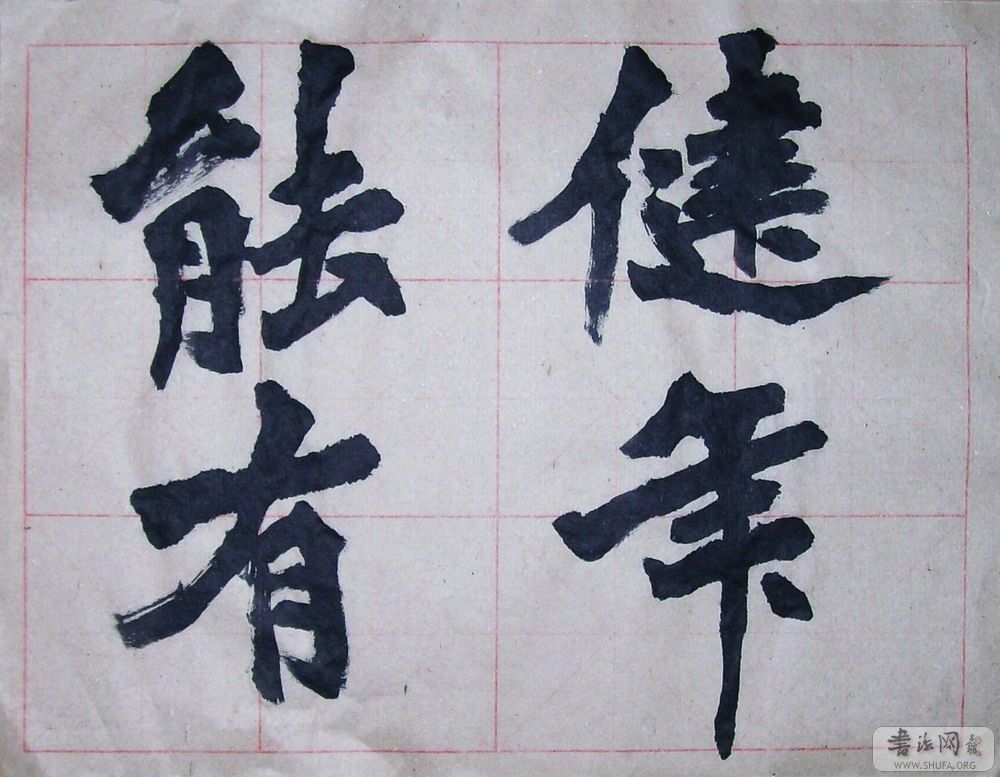 健
能有
书法网
WWW.SHUFA.ORG